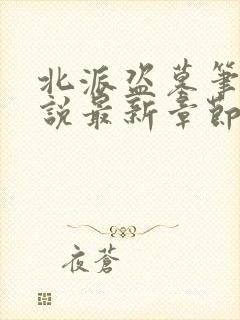 北派盗墓筆
說最新章節
夜蒼